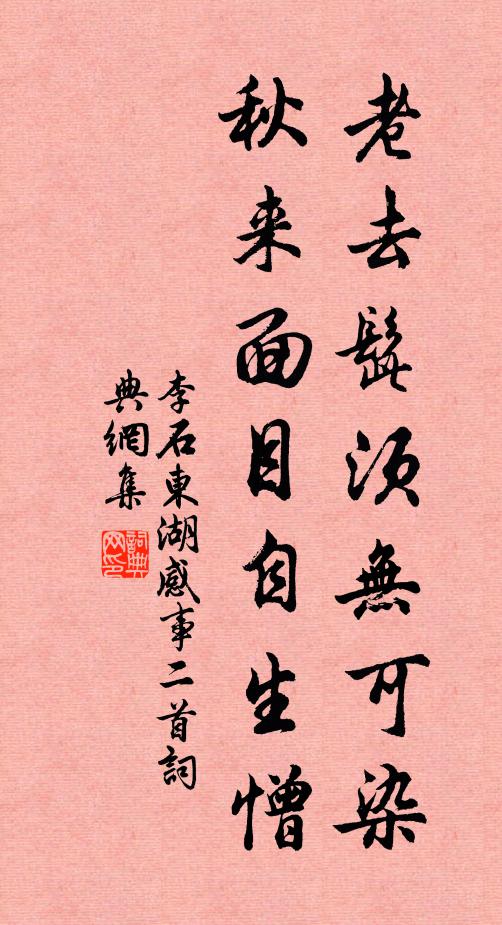 老去髭须無可染
秋来面目自生憎
李石東湖感事二首詞
典網集
詞典
网印